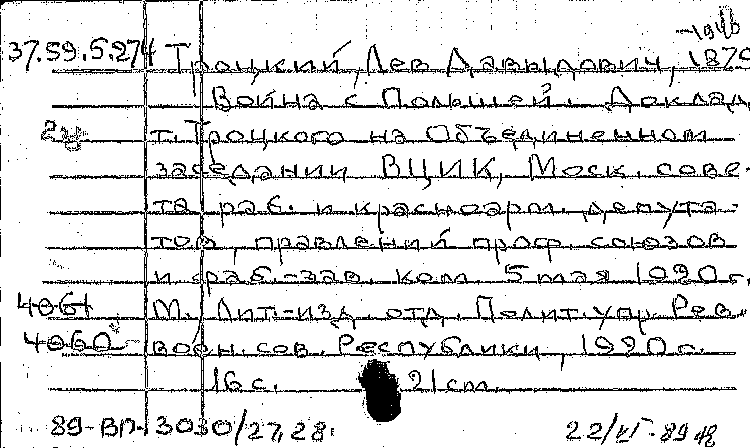 -1940
37.59.5.274 Троцкий, Лев Давыдович, 1879
Война с Польшей. Доклад
2у т. Троцкого на Объединенном
заседании ВЦИК, Моск. сове-
та раб. и красноарм. депута-
тов, правлений проф. союзов
и фаб.-зав. ком. 5 мая 1920 г.
4061 М. Лит.-изд. отд. Полит. упр. Рев.
4060 воен. сов. Республики, 1920 г.
16 с. 21 cm.
89-ВП-3030/27,28.
22/VI-89